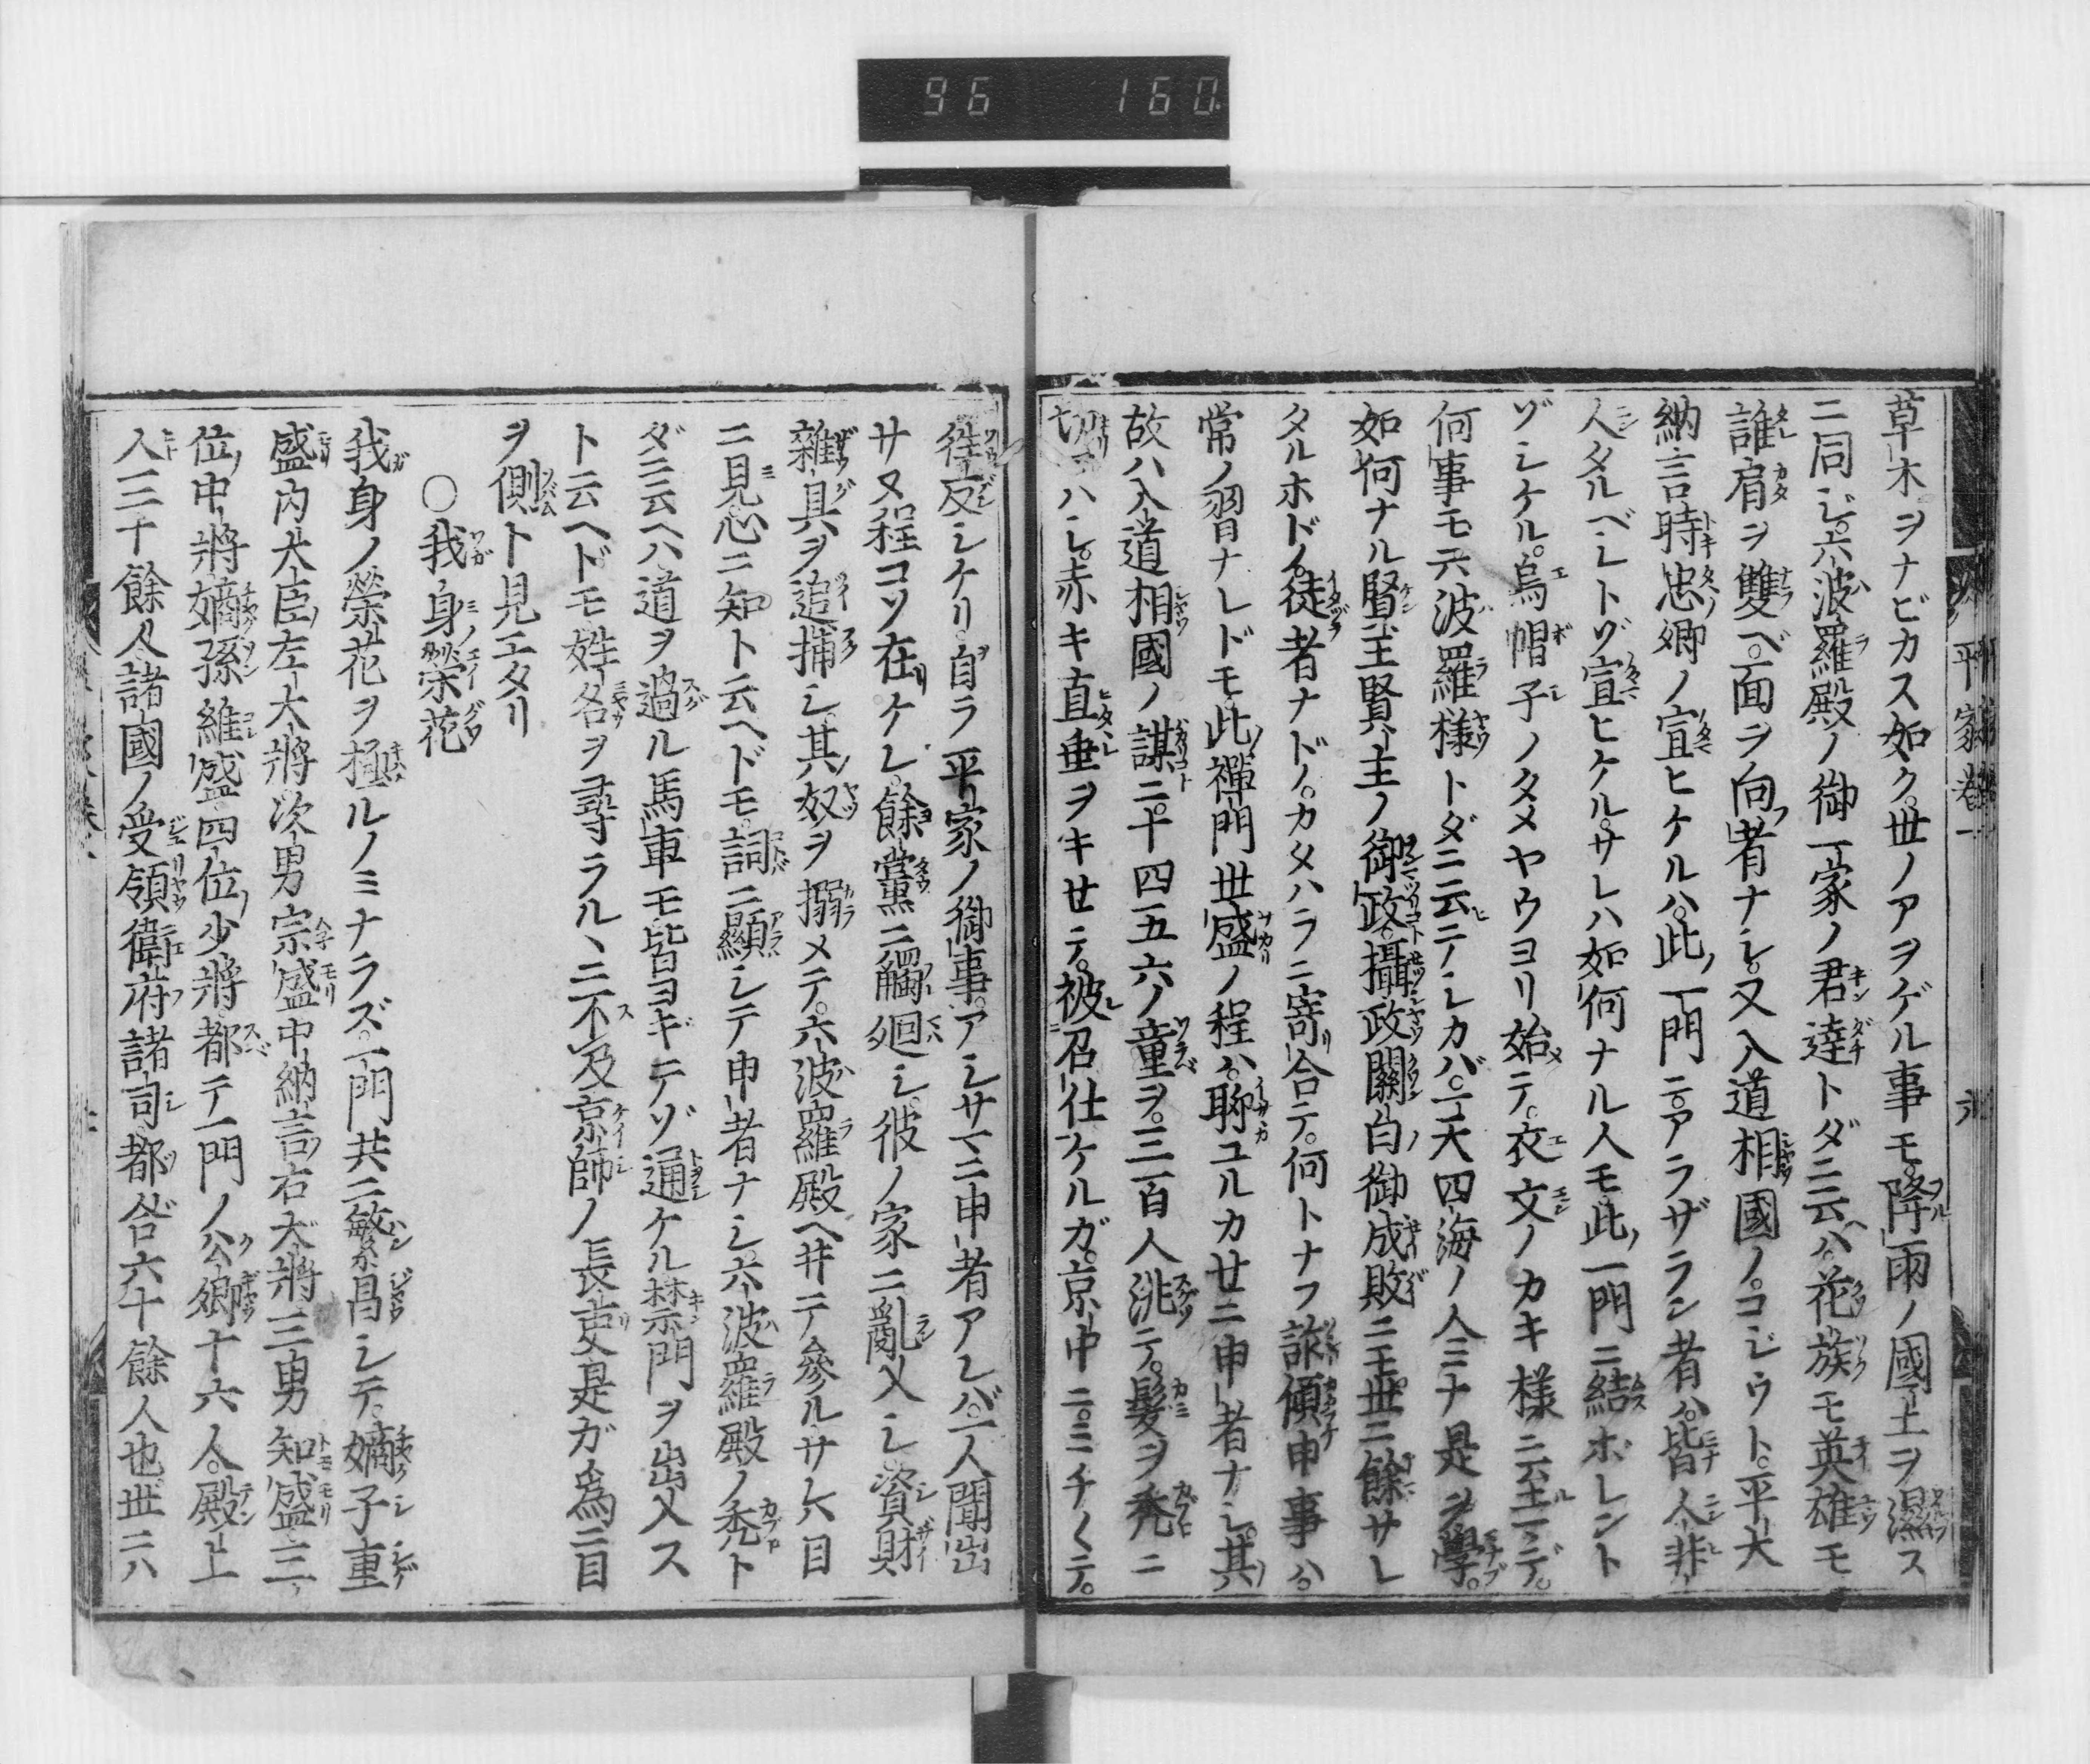 96 160
平家卷一
草木ヲナビカス如ク。世ノアヲゲル事モ。降雨ノ國土ヲ濕ス
ニ同ジ。六波羅殿ノ御一家ノ君達トダニ云ヘハ。花族モ英雄モ
誰肩ヲ雙ベ。面ヲ向者ナシ。又入道相國ノ。コジウト。平大
納言時忠卿ノ宣ヒケルハ。此一門ニ。アラザラン者ハ。皆人非
人タルベシトゾ宣ヒケル。サレハ如何ナル人モ。此一門ニ結ボレント
ゾシケル。烏帽子ノタメヤウヨリ始テ。衣文ノカキ様ニ至マデ。
何事モ六波羅様トダニ云テシカバ。一天四海ノ人ミナ是ヲ學。
如何ナル賢王賢主ノ御政。攝政關白ノ御成敗ニモ。世ニ餘サレ
タルホドノ。徒者ナドノ。カタハラニ寄合テ。何トナフ誹傾申事ハ。
常ノ習ナレドモ。此禪門世盛ノ程ハ。聊ユルカセニ申者ナシ。其
故ハ入道相國ノ謀ニ。十四五六ノ童ヲ。三百人洮テ。髮ヲ禿ニ
切マハシ。赤キ直垂ヲキセテ。被召仕ケルガ。京中ニ。ミチ〱テ。
往反シケリ。自ラ平家ノ御事。アシサマニ申者アレバ。一人聞出
サヌ程コソ在ケレ。餘黨ニ觸廻シ。彼ノ家ニ亂入シ。資財
雜具ヲ追捕シ。其奴ヲ搦メテ。六波羅殿ヘ井テ參ルサレハ目
ニ見心ニ知ト云ヘドモ。詞ニ顯シテ申者ナシ。六波羅殿ノ禿ト
ダニ云ヘハ。道ヲ過ル馬車モ皆ヨギテゾ通ケル禁門ヲ出入ス
ト云ヘドモ。姓名ヲ尋ラルヽニ不及京師ノ長吏是ガ爲ニ目
ヲ側ト見エタリ
〇我身榮花
我身ノ榮花ヲ極ルノミナラズ。一門共ニ繁昌シテ。嫡子重
盛内大臣左大將次男宗盛中納言右大將三男知盛三
位中將嫡孫維盛四位少將。都テ一門ノ公卿十六人。殿上
人三十餘人諸國ノ受領衛府諸司都合六十餘人也世ニハ